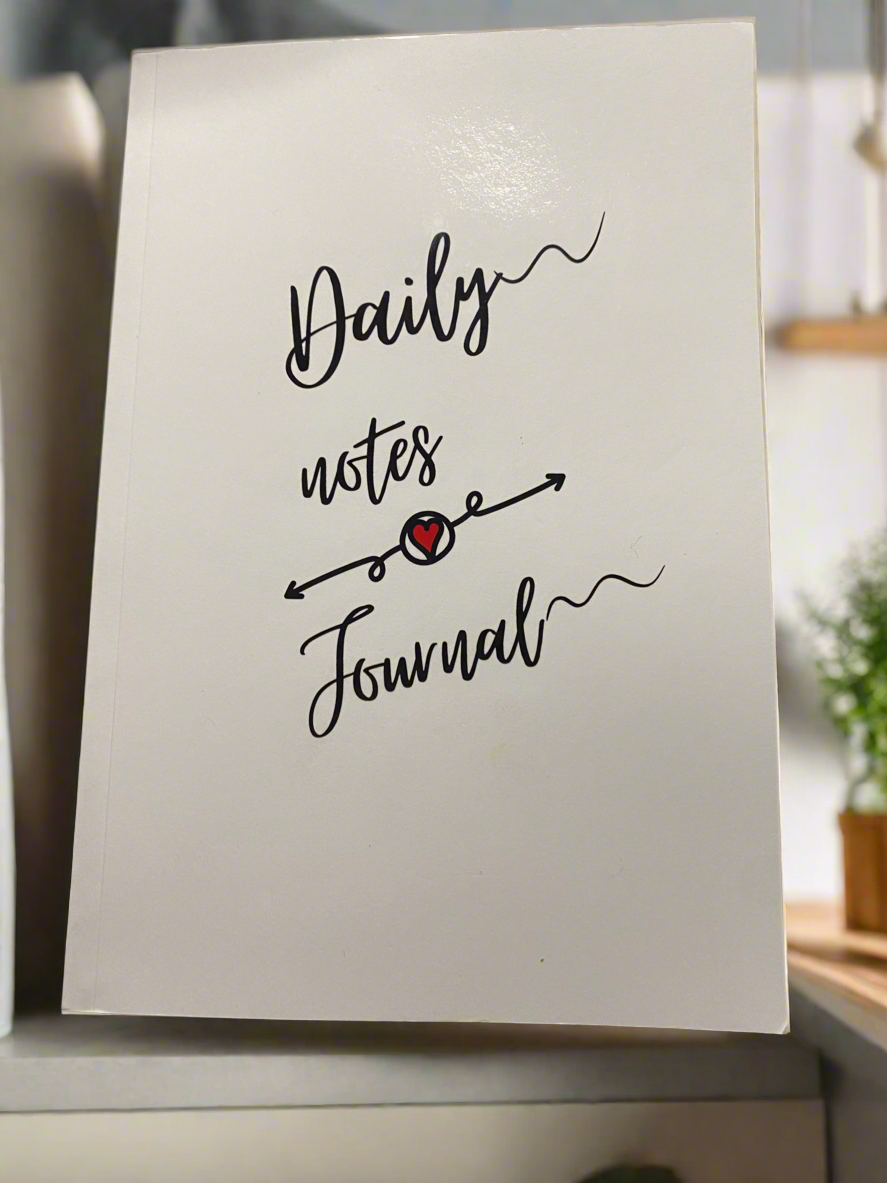 Daily
notes
Journal